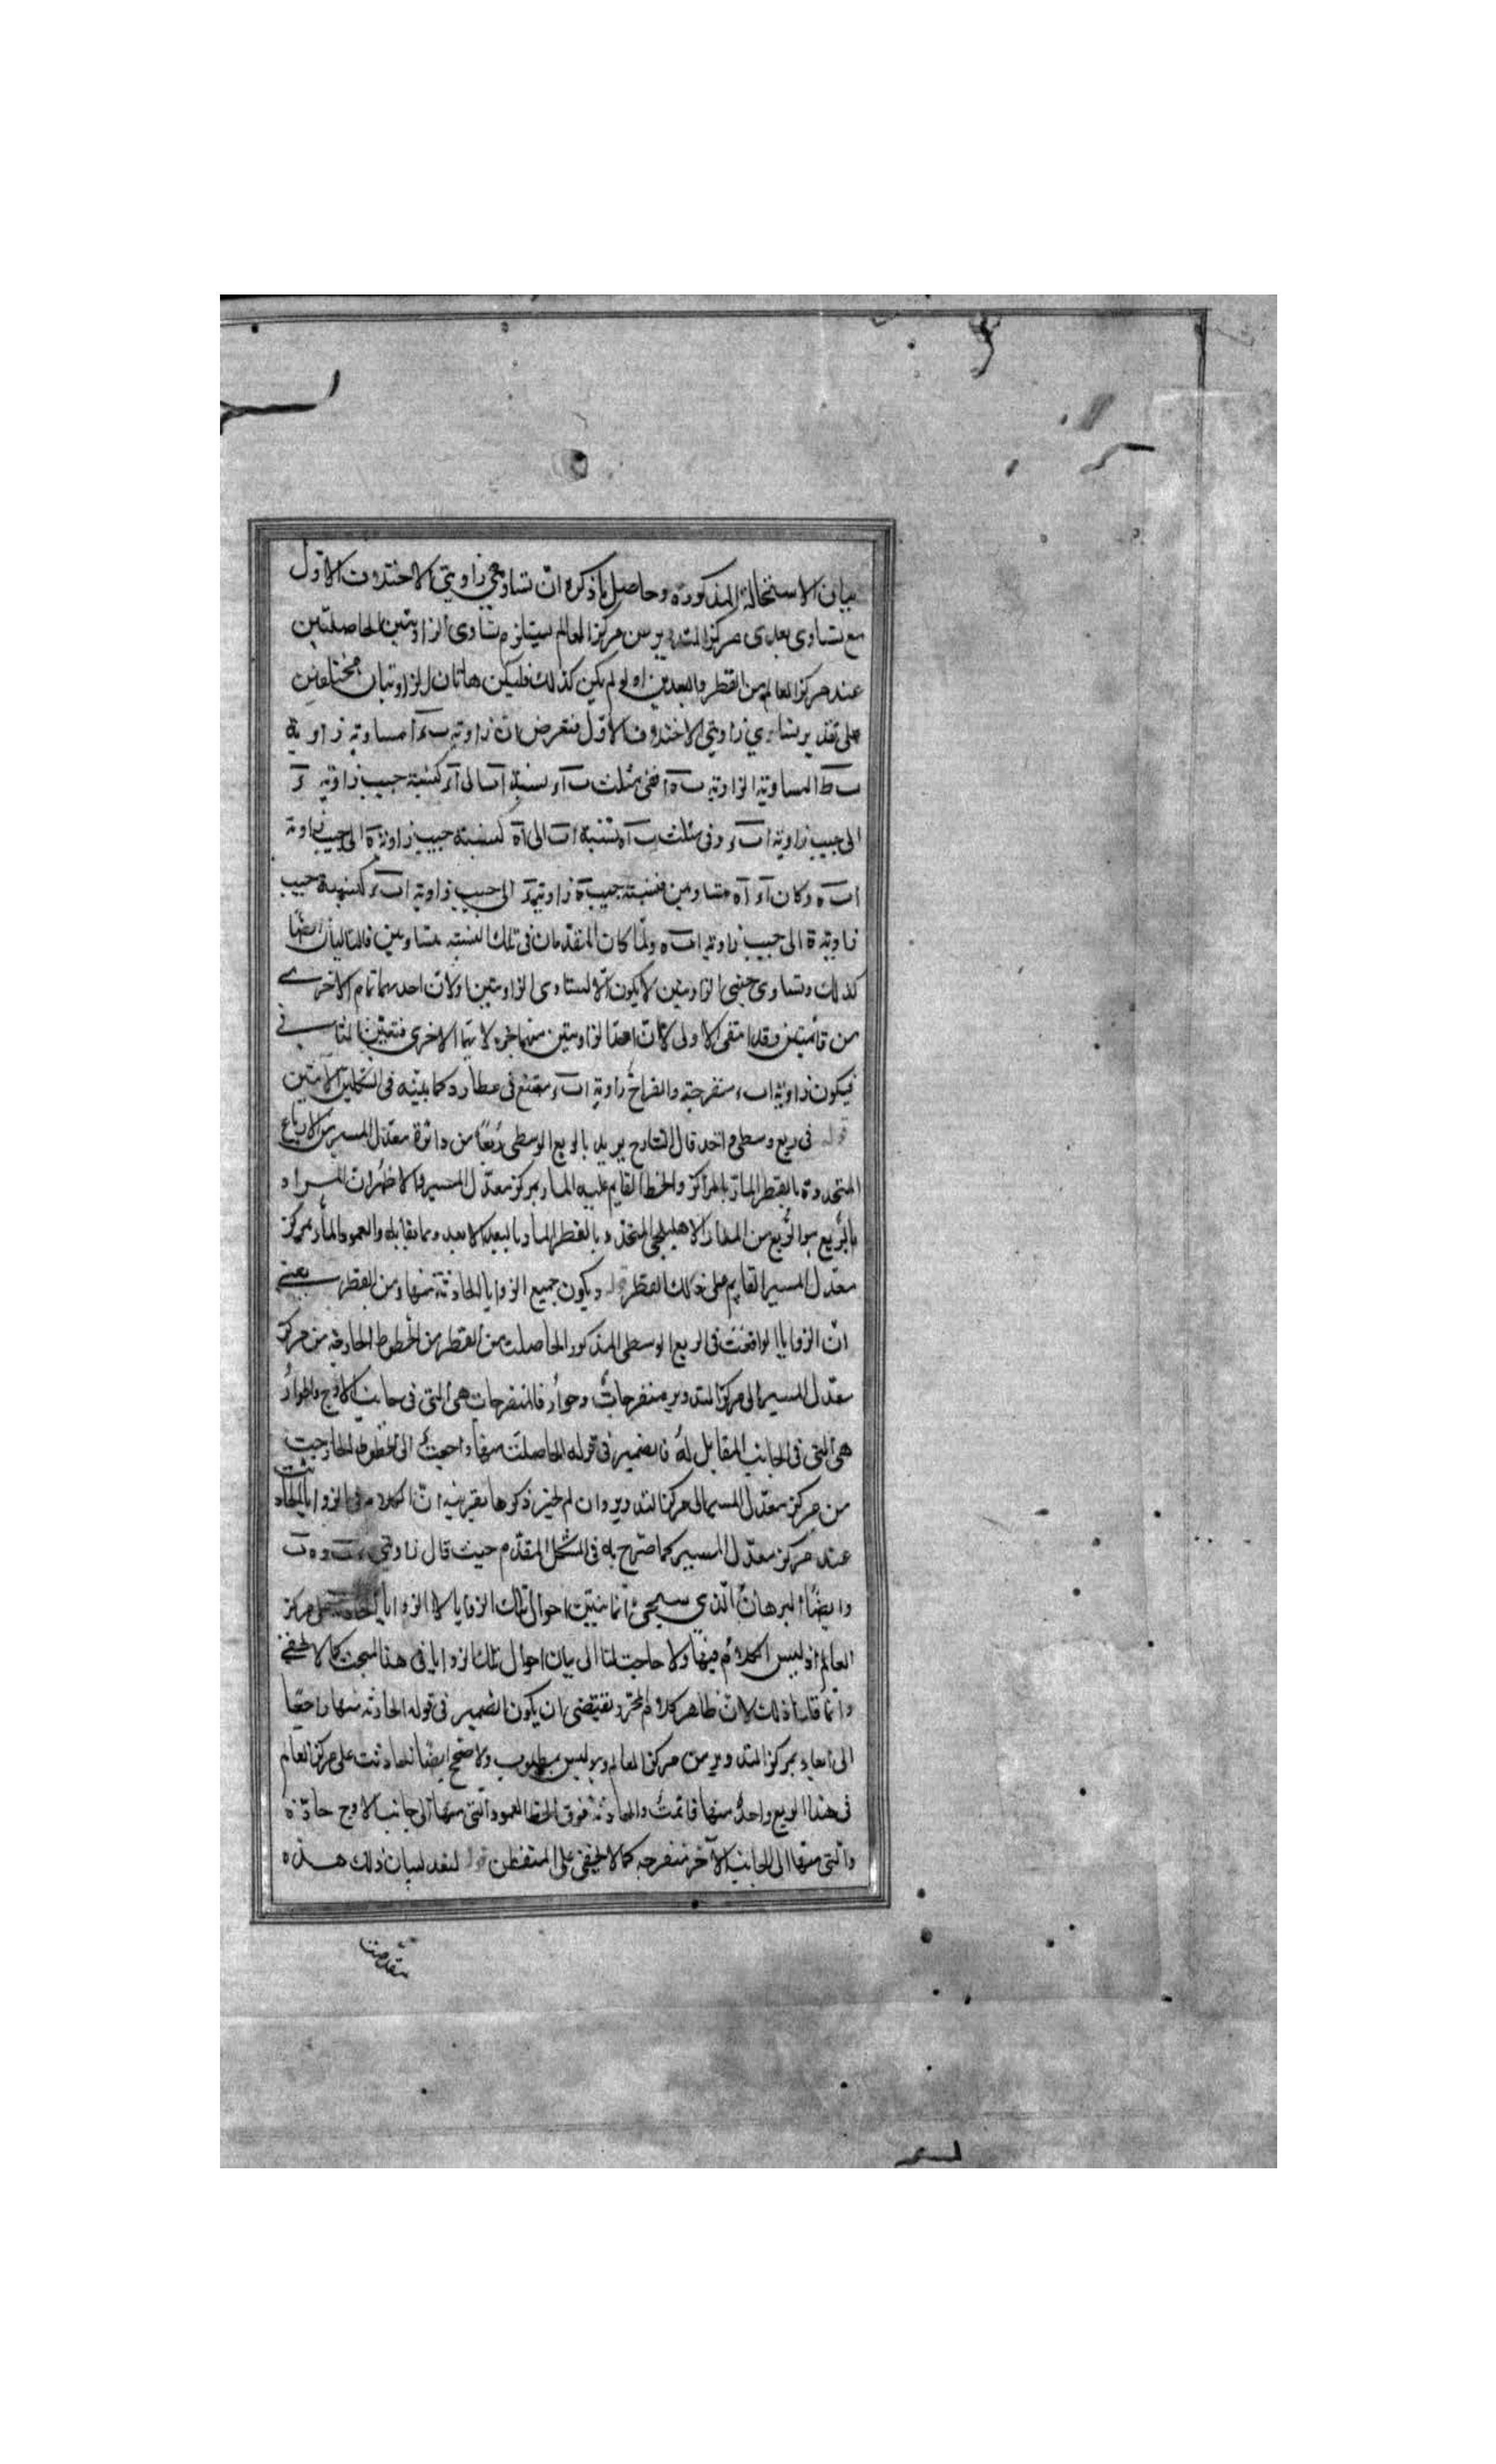 بيان الاستحالة المذكورة وحاصل ما ذكره ان تساوى زاويتى الاختلاف الاول
مع تساوى بعدى مركز التدوير من مركز العالم يستلزم تساوى الزاويتين الحاصلتين
عند مركز العالم من القطر والبعدين اولو لم يكن كذلك فليكن هاتان الزاويتان مختلفتين
على تقدير تساوي زاويتي الاختلاف الاول فنفرض ان زاوية مساوية زاوية
المساوية الزاوية ففى مثلث نسبة الى كنسبة جيب زاوية
الى جيب زاوية وفى مثلث فنسبة اب الى اه كنسبة جيب زاوية ه الى جيب زاوية
اب ه وكان اء اه متساويين فنسبة جيب زاوية الى جيب زاوية كنسبة جيب
زاوية ه الى جيب زاوية اب ه ولما كان المقدمان فى تلك النسبة متساويين فالتاليان ايضا
كذلك وتساوى جيبى الزاويتين لا يكون الا لتساوى الزاويتين اولان احديهما تمام الاخرى
من قائمتين وقد انتفى الاولى لان احد الزاويتين منهما جزء لا يتما الاخرى فتعين الثانى
فيكون زاوية اب ء منفرجة وانفراج زاوية اب ء ممتنع فى عطارد كما بينه فى الشكلين الآتيين
قوله فى ربع وسطى واحد قال الشارح يريد بالربع الوسطى ربعا من دائرة معدل المسير من الارباع
المتحددة بالقطر المار بالمراكز والخط القايم عليه المار بمركز معدل المسير والاظهر ان المراد
بالربع هو الربع من المدار الاهليلجى المتحدد بالقطر المار بالبعد الابعد وما يقابله والعمود المار بمركز
معدل المسير القايم على ذلك القطر قوله ويكون جميع الزوايا الحادثة منها ومن القطر يعنى
ان الزوايا الواقعة فى الربع الوسطى المذكور الحاصلة من القطر من الخطوط الخارجة من مركز
معدل المسير الى مركز التدوير منفرجات وحواد فالمنفرجات هى التى فى جانب الاوج والحواد
هى التى فى الجانب المقابل له فالضمير فى قوله الحاصلة منها راجعة الى الخطوط الخارجة
من مركز معدل المسير الى مركز التدوير وان لم يجز ذكرها بقرينة ان الكلام فى الزوايا الحادثة
عند مركز معدل المسير كما صرح به فى الشكل المقدم حيث قال زاويتى
وايضا البرهان الذى سيجئ انما يتبين احوال تلك الزوايا لا الزوايا الحادثة على مركز
العالم اذ ليس الكلام فيها ولا حاجة لنا الى بيان احوال تلك الزوايا فى هذا المبحث كما لا يخفى
وانما قلنا ذلك لان ظاهر كلام المحرر يقتضى ان يكون الضمير فى قوله الحادثة منها راجعا
الى ابعاد مركز التدوير من مركز العالم وهو ليس بمطلوب ولا صح ايضا لحادثة على مركز العالم
فى هذا الربع واحد منها قائمة والحادثة فوق الخط العمود التى منها الى جانب الاوج حادة
والتى منها الى الجانب الآخر منفرجة كما لا يخفى على المتفطن قوله لنقدم لبيان ذلك هذه